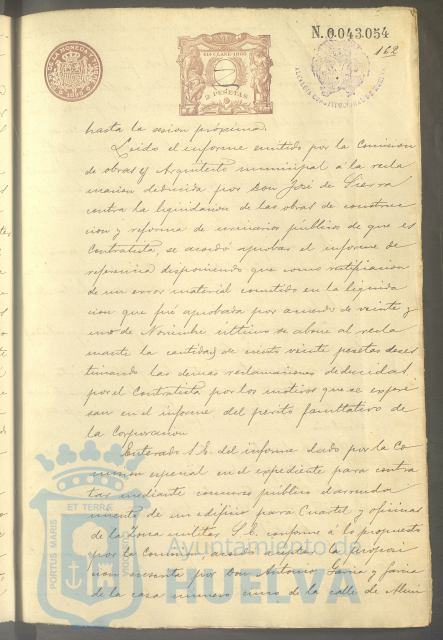 N. 0.043.054
162
2 PESETAS
hasta la sesion próxima.
Leido el informe emitido por la Comision
de obras y Arquitecto municipal á la recla
macion deducida por Don José de Sierra
contra la liquidacion de las obras de construc
cion y reforma de urinarios públicos de que es
Contratista, se acordó aprobar el informe de
referencia disponiendo que como ratificacion
de un error material cometido en la liquida
cion que fué aprobada por acuerdo de veinte y
uno de Noviembre último se abone al recla
mante la cantidad de ciento veinte pesetas deses
timando las demas reclamaciones deducidas
por el Contratista por los motivos que se expre
san en el informe del perito facultativo de
la Corporacion
Enterado S.E. del informe dado por la Co
mision especial en el expediente para contra
tar mediante concurso público el arrenda
miento de un edificio para Cuartel y oficinas
de la Zona militar, S.E. conforme á lo propuesto
por la Comision acordó aceptar la proposi
cion suscrita por Don Antonio Garcia y Garcia
de la casa numero cinco de la calle de
PORTUS MARIS
ET TERRE
Ayuntamiento de
HUELVA